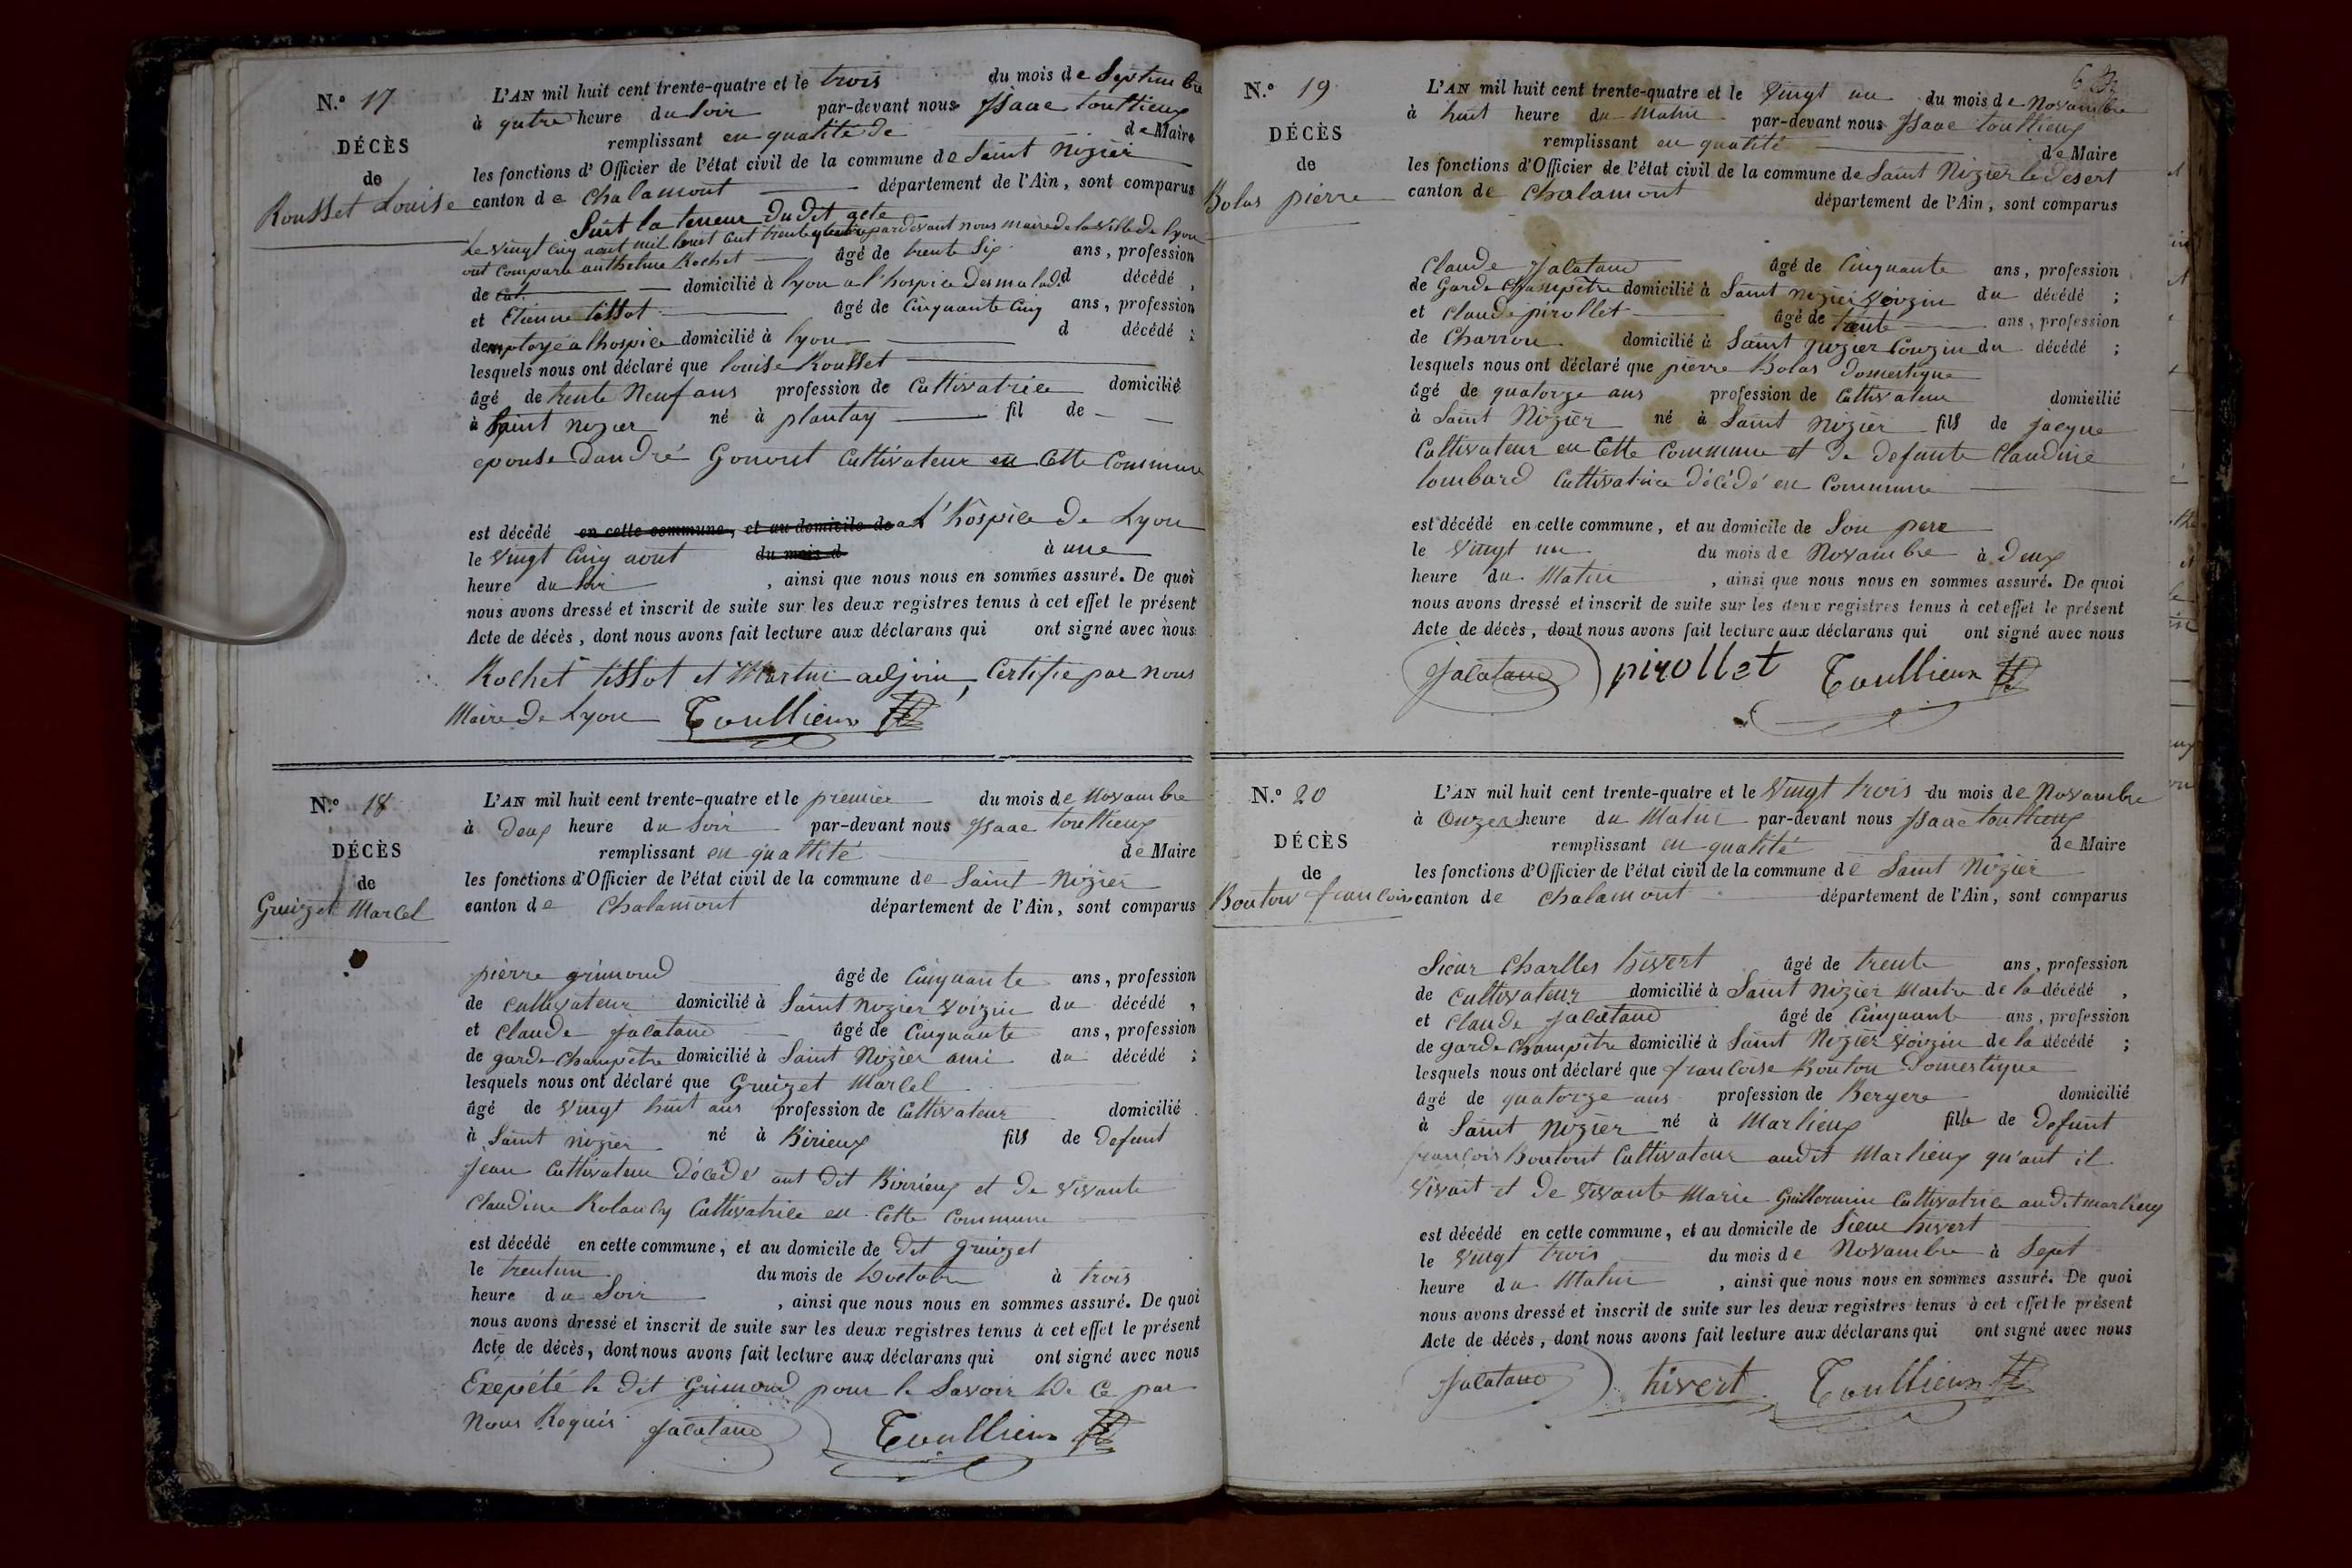 N.° 17
DÉCÈS
de
Rousset Louise
L'AN mil huit cent trente-quatre et le trois du mois de Septembre
à quatre heure du soir par-devant nous Isaac Toullieux
remplissant en qualité de de Maire
les fonctions d'Officier de l'état civil de la commune de Saint Nizier
canton de Chalamont département de l'Ain, sont comparus
Suit la teneur Dudit acte
Le vingt cinq aout mil huit cent trente quatre pardevant nous maire de la ville de lyon
ont comparu Rochet âgé de trente Six ans, profession
de domicilié à lyon a l'hospice des malad. d décédé,
et Etienne tissot âgé de Cinquante Cinq ans, profession
demployé a lhospice domicilié à lyon d décédé;
lesquels nous ont déclaré que louise Rousset
âgé de trente Neuf ans profession de Cultivatrice domicilié
à Saint nizier né à plantay fil de
epouse Dandré Gonont Cultivateur en Cette Commune
est décédé en cette commune, et au domicile de a l'hospice de Lyon
le Vingt Cinq aout du mois d à une
heure du soir, ainsi que nous nous en sommes assuré. De quoi
nous avons dressé et inscrit de suite sur les deux registres tenus à cet effet le présent
Acte de décès, dont nous avons fait lecture aux déclarans qui ont signé avec nous
Rochet tissot et Martin adjoin, Certifie par nous
Maire de Lyon Toullieux
N.° 18
DÉCÈS
de
Gruizet Marcel
L'AN mil huit cent trente-quatre et le premier du mois de Novambre
à Deux heure du Soir par-devant nous Isaac Toullieux
remplissant en quallité de Maire
les fonctions d'Officier de l'état civil de la commune de Saint Nizier
canton de Chalamont département de l'Ain, sont comparus
pierre grimoud âgé de Cinquante ans, profession
de cultivateur domicilié à Saint Nizier Voizin du décédé,
et Claude Jalataud âgé de Cinquante ans, profession
de garde Champêtre domicilié à Saint Nizier ami du décédé;
lesquels nous ont déclaré que Gruizet Marcel
âgé de Vingt huit ans profession de Cultivateur domicilié
à Saint nizier né à Birieux fils de Defunt
Jean Cultivateur Décédé aut dit Birrieux et de Vivante
Claudine Rolanby Cultivatrice en Cette Commune
est décédé en cette commune, et au domicile de Dit Gruizet
le trentun du mois de Hoctobre à trois
heure du Soir, ainsi que nous nous en sommes assuré. De quoi
nous avons dressé et inscrit de suite sur les deux registres tenus à cet effet le présent
Acte de décès, dont nous avons fait lecture aux déclarans qui ont signé avec nous
Exepiété le Dit Grimoud pour le Savoir De Ce par
Nous Requis Jalataud Toullieux
N.° 19
DÉCÈS
de
Bolas pierre
L'AN mil huit cent trente-quatre et le Vingt un du mois de Novambre
à huit heure du Matin par-devant nous Isaac Toullieux
remplissant en quatité de Maire
les fonctions d'Officier de l'état civil de la commune de Saint Nizier le Desert
canton de Chalamont département de l'Ain, sont comparus
Claude Jalataud âgé de Cinquante ans, profession
de Garde Champêtre domicilié à Saint Nizier Voizin du décédé;
et Claude pirollet âgé de trente ans, profession
de Charron domicilié à Saint Nizier Couzin du décédé;
lesquels nous ont déclaré que pierre Bolas Domestique
âgé de quatorze ans profession de Cultivateur domicilié
à Saint Nizier né à Saint Nizier fils de jacque
Cultivateur en Cette Commune et de defunte Claudine
lombard Cultivatrice Décédé en Commune
est décédé en cette commune, et au domicile de Son pere
le Vingt un du mois de Novambre à Deux
heure du Matin, ainsi que nous nous en sommes assuré. De quoi
nous avons dressé et inscrit de suite sur les deux registres tenus à cet effet le présent
Acte de décès, dont nous avons fait lecture aux déclarans qui ont signé avec nous
Jalataud pirollet Toullieux
N.° 20
DÉCÈS
de
Bouton francoise
L'AN mil huit cent trente-quatre et le Vingt trois du mois de Novambre
à Onzes heure du Matin par-devant nous Isaac Toullieux
remplissant en quatité de Maire
les fonctions d'Officier de l'état civil de la commune de Saint Nizier
canton de Chalamont département de l'Ain, sont comparus
Sieur Charlles hivert âgé de trente ans, profession
de Cultivateur domicilié à Saint Nizier Maitre de la décédé,
et Claude Jalataud âgé de Cinquante ans, profession
de garde Champêtre domicilié à Saint Nizier Voizin de la décédé;
lesquels nous ont déclaré que francoise Bouton Domestique
âgé de quatorze ans profession de Bergere domicilié
à Saint Nizier né à Marlieux fille de Defunt
françois Boutont Cultivateur audit Marlieux qu'ant il
Vivait et de Vivante Marie Guillermin Cultivatrice audit marlieux
est décédé en cette commune, et au domicile de Sieur hivert
le Vingt trois du mois de Novambre à Sept
heure du Matin, ainsi que nous nous en sommes assuré. De quoi
nous avons dressé et inscrit de suite sur les deux registres tenus à cet effet le présent
Acte de décès, dont nous avons fait lecture aux déclarans qui ont signé avec nous
Jalataud hivert Toullieux